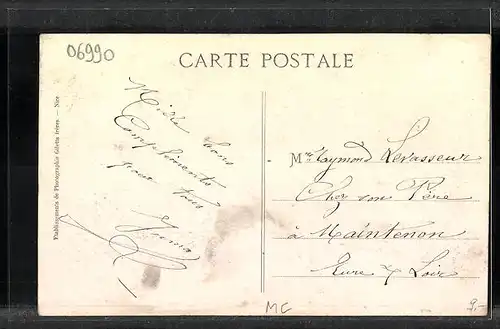 06990
CARTE POSTALE
Etablissements de Photographie Giletta frères. — Nice
Mille bons
Compliments
pour tous
Mr Raymond Levasseur
Chez son Père
à Maintenon
Eure & Loir
MC
9.-